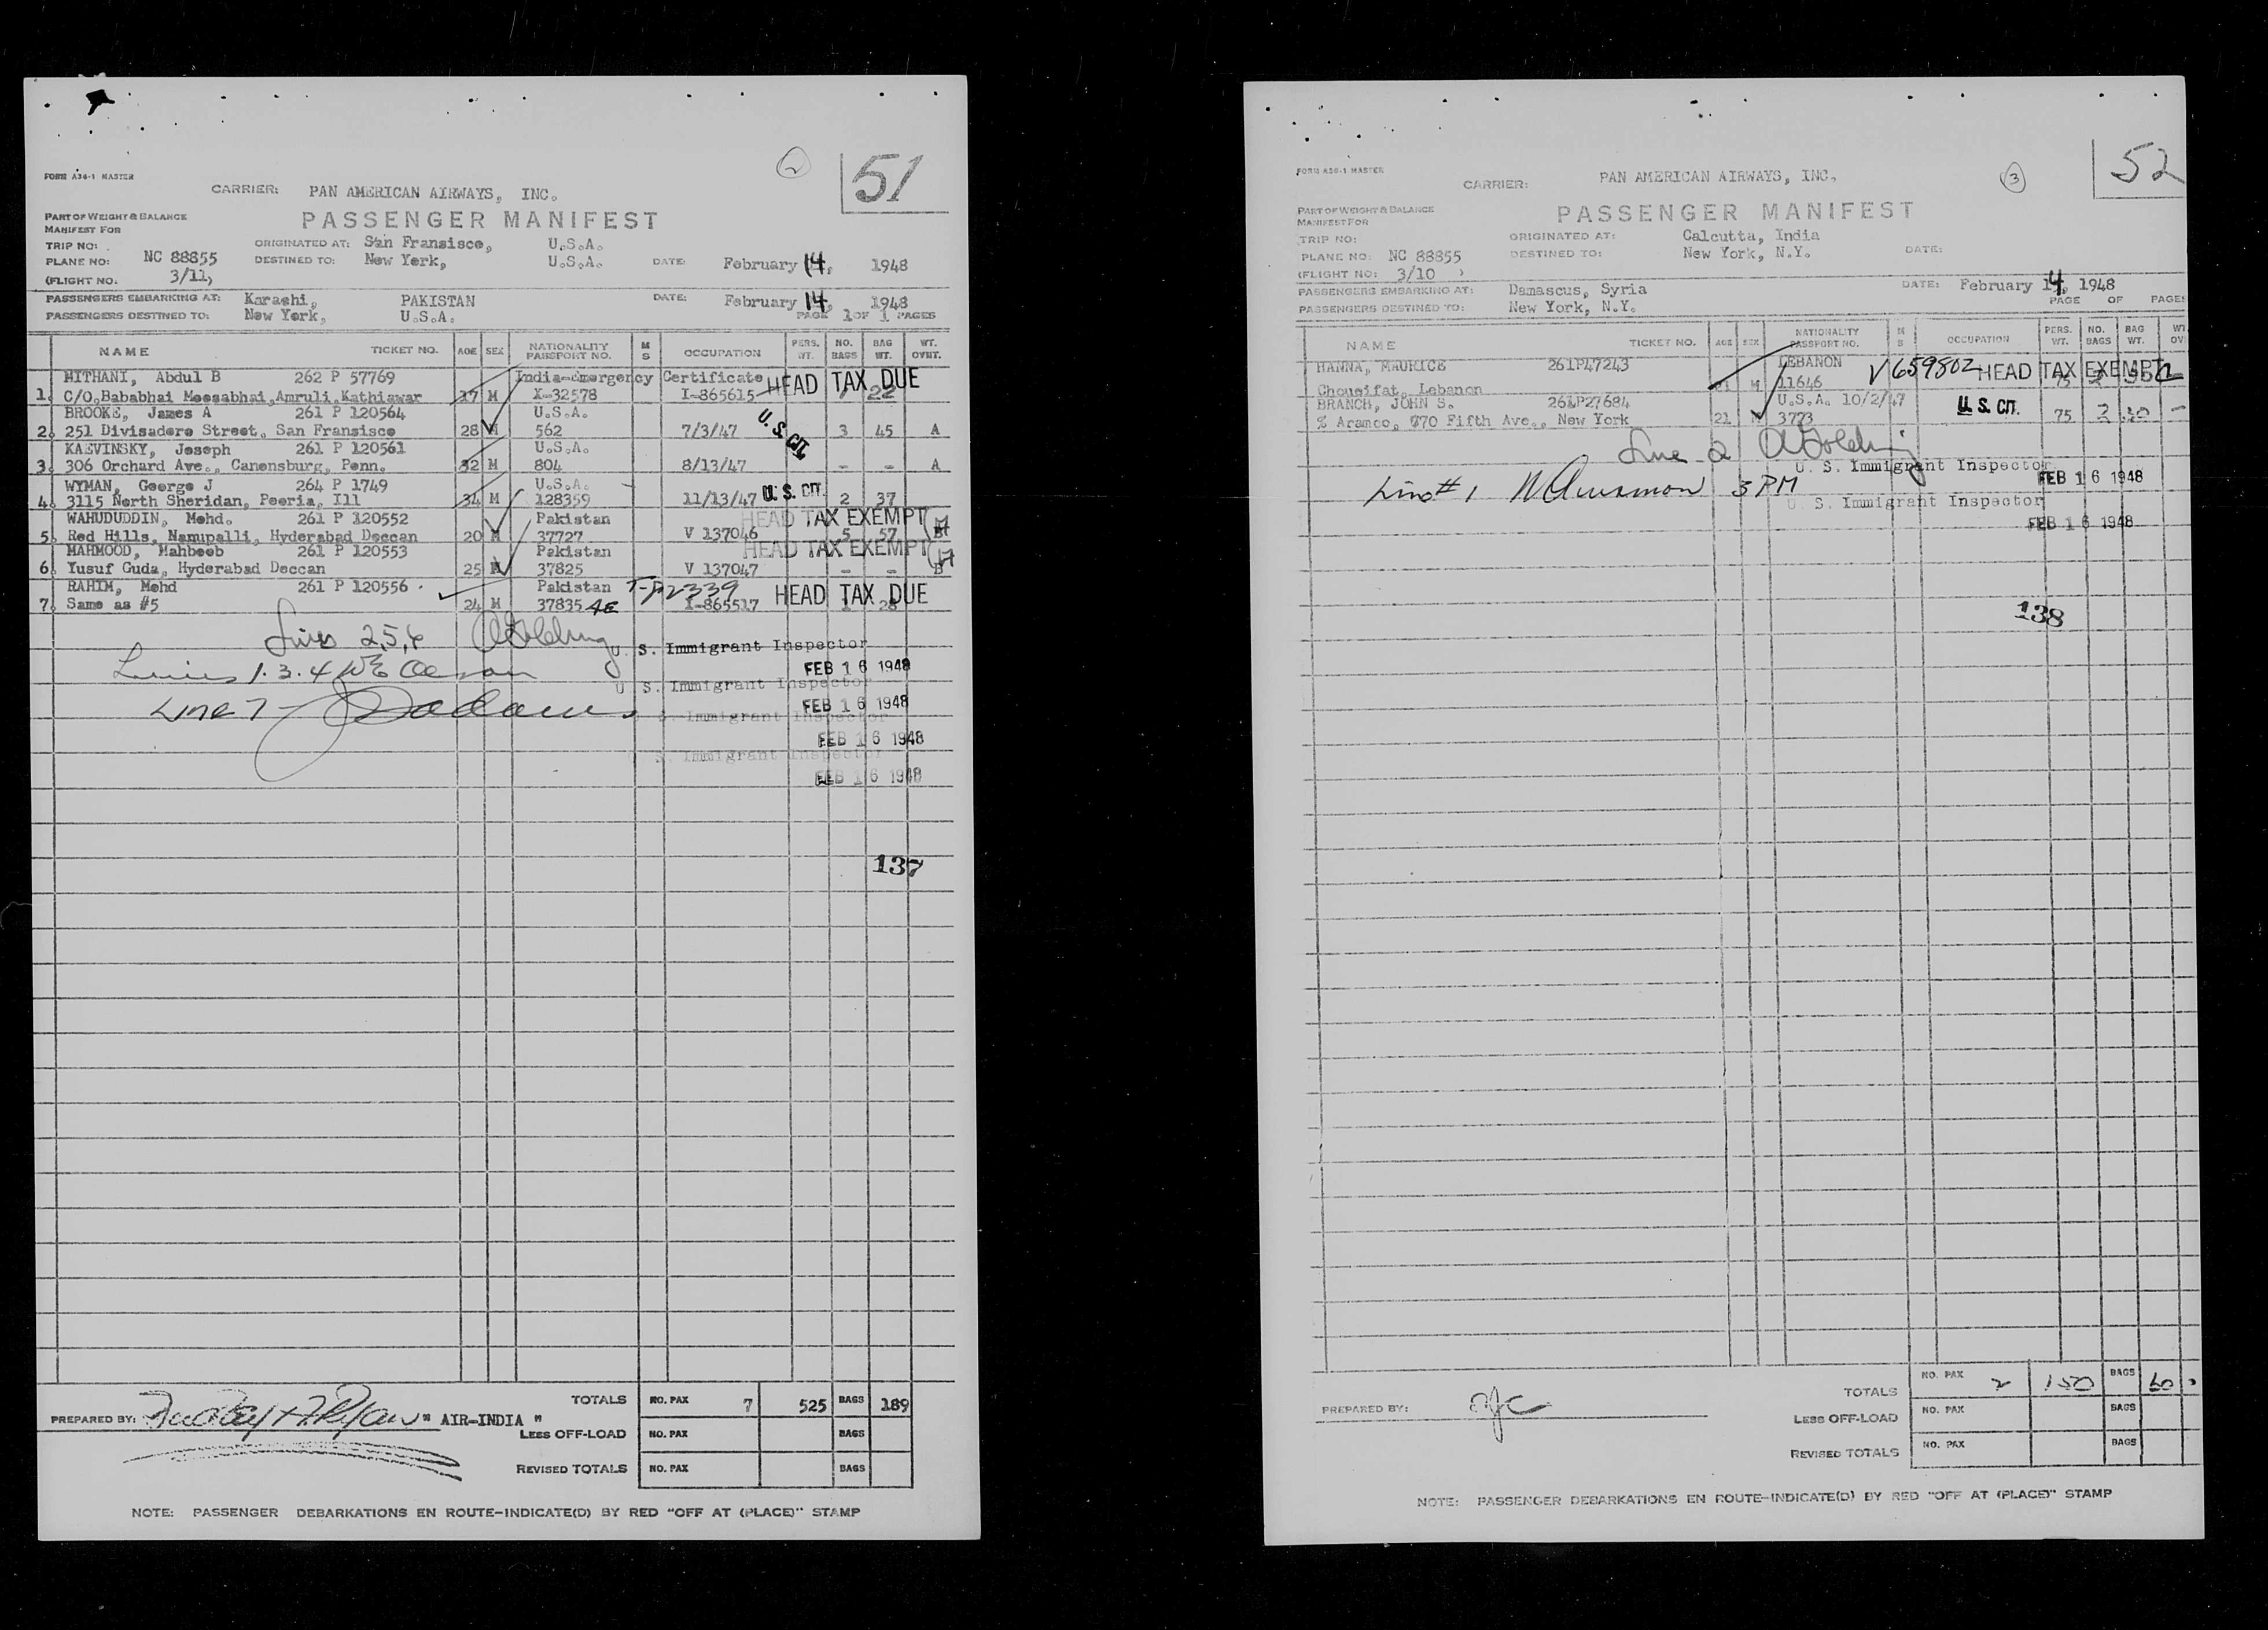 FORM A36-1 MASTER
2
51
CARRIER: PAN AMERICAN AIRWAYS, INC.
PART OF WEIGHT & BALANCE
MANIFEST FOR
PASSENGER MANIFEST
TRIP NO:
ORIGINATED AT: San Fransisco, U.S.A.
PLANE NO: NC 88855
DESTINED TO: New York, U.S.A. DATE: February 14, 1948
(FLIGHT NO. 3/11)
PASSENGERS EMBARKING AT: Karachi, PAKISTAN DATE: February 14, 1948
PASSENGERS DESTINED TO: New York, U.S.A. PAGE 1 OF 1 PAGES
NAME TICKET NO. AGE SEX NATIONALITY PASSPORT NO. M S OCCUPATION PERS. WT. NO. BAGS BAG WT. WT. OVHT.
MITHANI, Abdul B 262 P 57769 India-Emergency Certificate HEAD TAX DUE
1. C/O.Bababhai Moosabhai,Amruli,Kathiawar 17 M X-32578 I-865615 22
BROOKE, James A 261 P 120564 U.S.A. U.S. CIT.
2. 251 Divisadero Street, San Fransisco 28 M 562 7/3/47 3 45 A
KAEVINSKY, Joseph 261 P 120561 U.S.A.
3. 306 Orchard Ave., Canonsburg, Penn. 32 M 804 8/13/47 - - A
WYMAN, George J 264 P 1749 U.S.A.
4. 3115 North Sheridan, Peoria, Ill 34 M 128359 11/13/47 U.S. CIT. 2 37
WAHUDUDDIN, Mohd. 261 P 120552 Pakistan HEAD TAX EXEMPT
5. Red Hills, Nampalli, Hyderabad Deccan 20 M 37727 V 137046 5 57
MAHMOOD, Mahboob 261 P 120553 Pakistan HEAD TAX EXEMPT
6. Yusuf Guda, Hyderabad Deccan 25 M 37825 V 137047 - -
RAHIM, Mohd 261 P 120556 Pakistan HEAD TAX DUE
7. Same as #5 24 M 37835 I-865517 1 28
Lines 2,5,6
U. S. Immigrant Inspector
FEB 16 1948
Lines 1.3.4
U. S. Immigrant Inspector
FEB 16 1948
Line 7
S. Immigrant Inspector
FEB 16 1948
S. Immigrant Inspector
FEB 16 1948
137
PREPARED BY: " AIR-INDIA "
TOTALS NO. PAX 7 525 BAGS 189
LESS OFF-LOAD NO. PAX BAGS
REVISED TOTALS NO. PAX BAGS
NOTE: PASSENGER DEBARKATIONS EN ROUTE-INDICATE(D) BY RED "OFF AT (PLACE)" STAMP
FORM A36-1 MASTER
3
52
CARRIER: PAN AMERICAN AIRWAYS, INC.
PART OF WEIGHT & BALANCE
MANIFEST FOR
PASSENGER MANIFEST
TRIP NO:
ORIGINATED AT: Calcutta, India
PLANE NO: NC 88855
DESTINED TO: New York, N.Y. DATE:
(FLIGHT NO: 3/10 )
PASSENGERS EMBARKING AT: Damascus, Syria DATE: February 14, 1948
PASSENGERS DESTINED TO: New York, N.Y. PAGE OF PAGES
NAME TICKET NO. AGE SEX NATIONALITY PASSPORT NO. M S OCCUPATION PERS. WT. NO. BAGS BAG WT. WT OV
HANNA, MAURICE 261P47243 LEBANON V659802 HEAD TAX EXEMPT
Choueifat, Lebanon M 11646 75
BRANCH, JOHN S. 261P27684 U.S.A. 10/2/47 U.S. CIT.
% Aramco, 770 Fifth Ave., New York 21 M 3773 75 2 30 -
Line 2
U. S. Immigrant Inspector
FEB 16 1948
Line #1 3 PM
U. S. Immigrant Inspector
FEB 16 1948
138
PREPARED BY:
TOTALS NO. PAX 2 150 BAGS 60
LESS OFF-LOAD NO. PAX BAGS
REVISED TOTALS NO. PAX BAGS
NOTE: PASSENGER DEBARKATIONS EN ROUTE-INDICATE(D) BY RED "OFF AT (PLACE)" STAMP